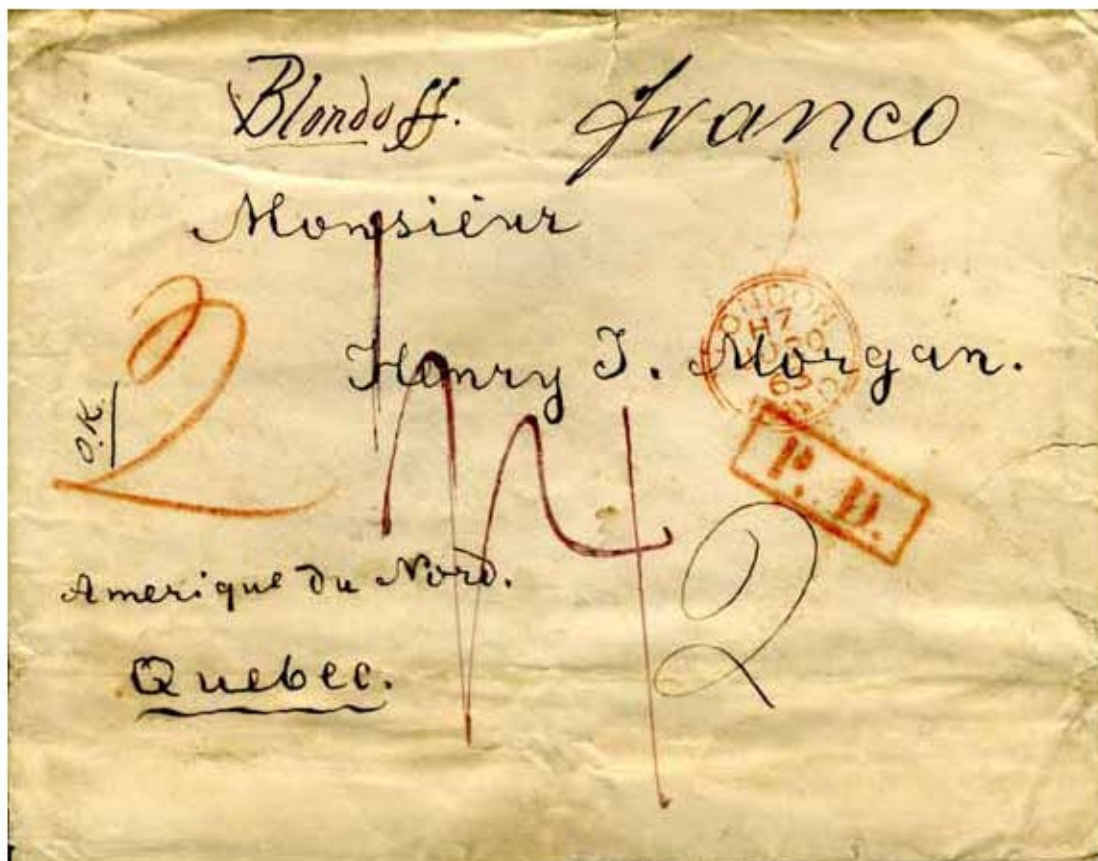 Blondoff. Franco
Monsieur
Henry J. Morgan.
LONDON
H7
P. D.
2
O.K.
2
Amerique du Nord.
Quebec.